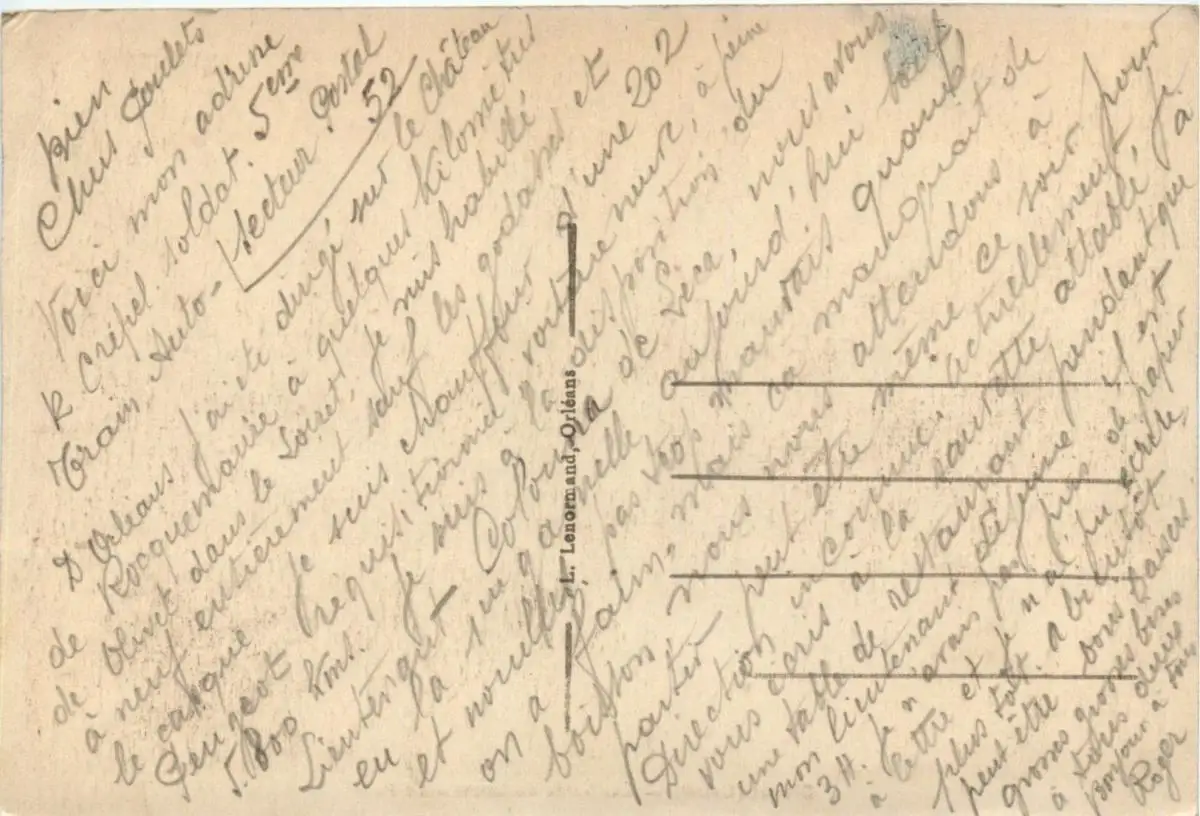 bien
Chers Poulets
Voici mon adresse
R Crépel soldat. 5eme
Train Auto- Secteur Postal
52
D'Orléans j'ai été dirigé sur le Château
de à quelques kilomètres
de Olivet dans le Loiret, je suis habillé
à neuf entièrement sauf les godasses et
le casque. Je suis chauffeur d'une 202
Peugeot requisitionné voiture neuve, à peine
5.800 kms. Je suis à la disposition du
Lieutenant Colonel de nous avons
eu la 1ere gamelle aujourd'hui boeuf
et nouilles, pas trop mauvais quand
on a faim, mais ça manquait de
boisson nous nous attendons à
partir peut etre même ce soir pour
Direction inconnue. Actuellement je
vous écris à la sauvette attablé à
une table de restaurant pendant que
mon lieutenant déjeune il est
3H. Je n'avais pas pris de papier
à lettre et je n'ai pu écrire
plus tôt. A bientôt
peut-être bons baisers
grosses grosses bises
à toutes deux
Bonjour à tous
Roger
L. Lenormand, Orléans